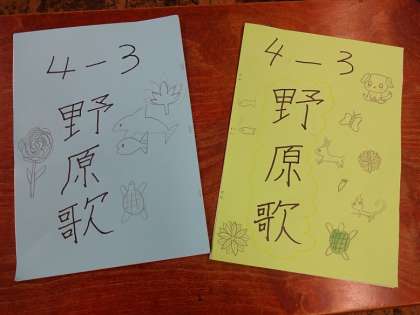 4－3
野原歌
4－3
野原歌